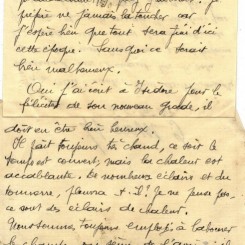 préfère ne jamais la toucher car
j'espère bien que tout sera fini d'ici
cette époque. Sans quoi ce serait
bien malheureux.
Oui j'ai écrit à Isidore pour le
féliciter de son nouveau grade, il
doit en être bien heureux.
Il fait toujours très chaud, ce soir le
temps est couvert, mais la chaleur est
accablante. De nombreux éclairs et du
tonnerre, pleuvra-t-il? Je ne pense pas,
ce sont des éclairs de chaleur.
Nous sommes toujours employés à labourer